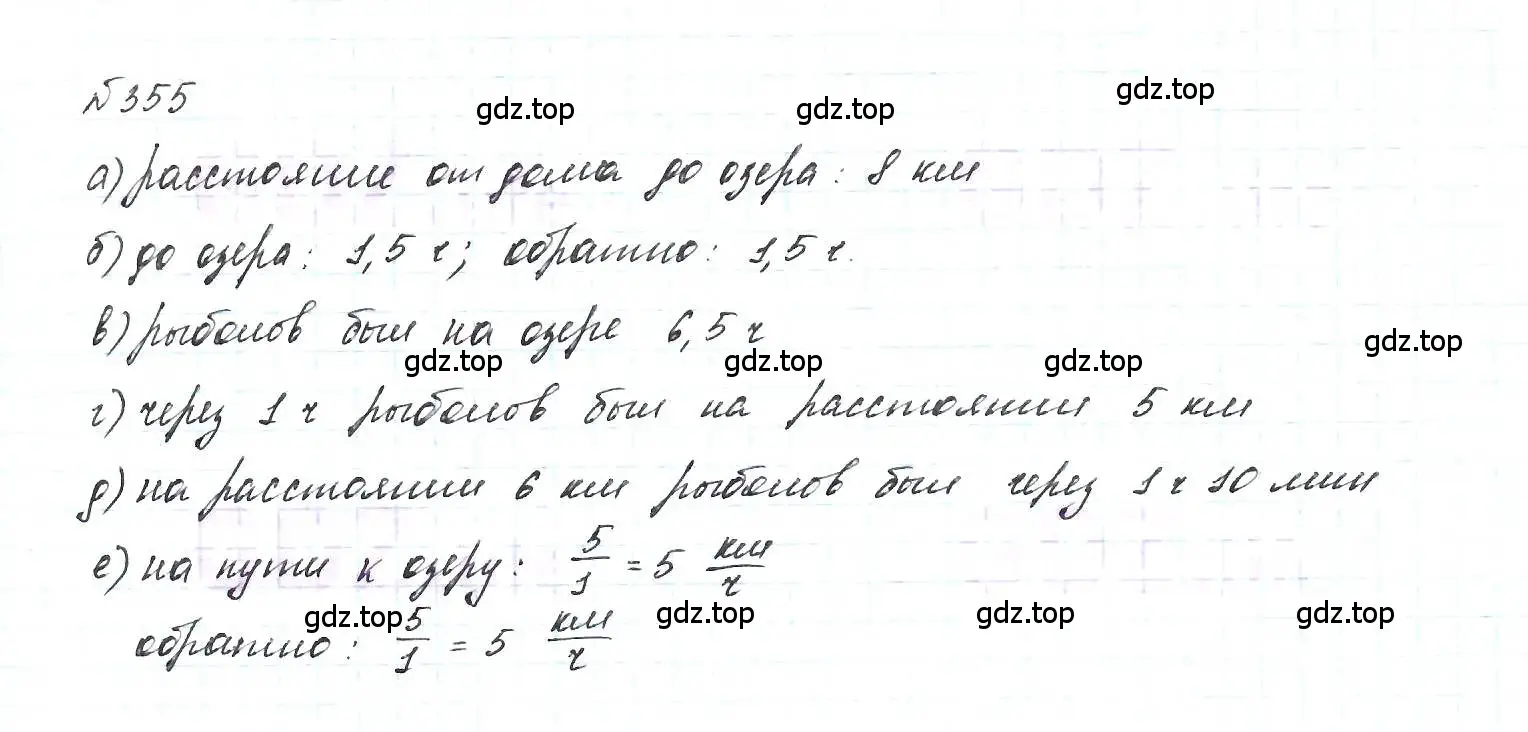 №355
gdz.top gdz.top gdz.top
а) расстояние от дома до озера: 8 км
б) до озера: 1,5 ч; обратно: 1,5 ч.
в) рыболов был на озере 6,5 ч
gdz.top gdz.top gdz.top gdz.top
г) через 1 ч рыболов был на расстоянии 5 км
д) на расстоянии 6 км рыболов был через 1 ч 10 мин
е) на пути к озеру: 5/1 = 5 км/ч
gdz.top gdz.top gdz.top gdz.top
обратно: 5/1 = 5 км/ч